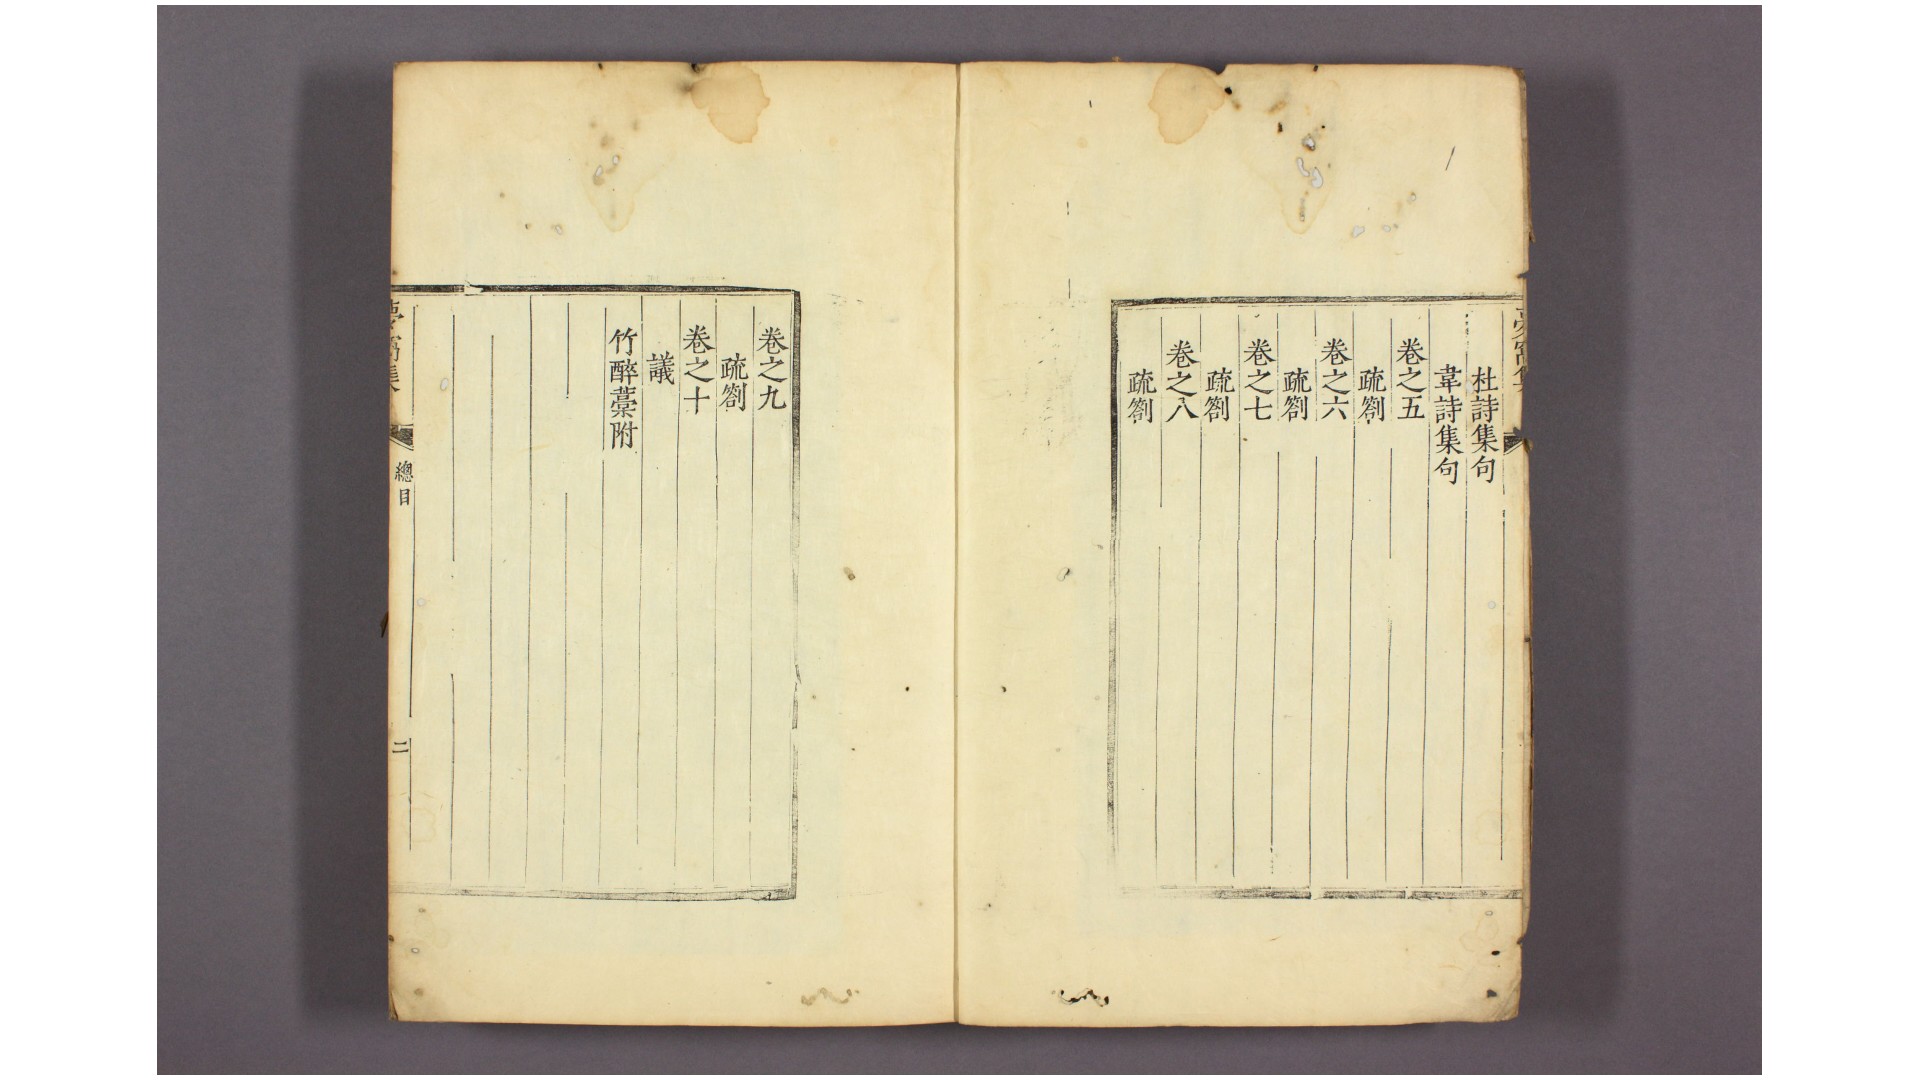 杜詩集句
韋詩集句
卷之五
疏劄
卷之六
疏劄
卷之七
疏劄
卷之八
疏劄
卷之九
疏劄
卷之十
議
竹醉藁附
夢窩集
總目
二